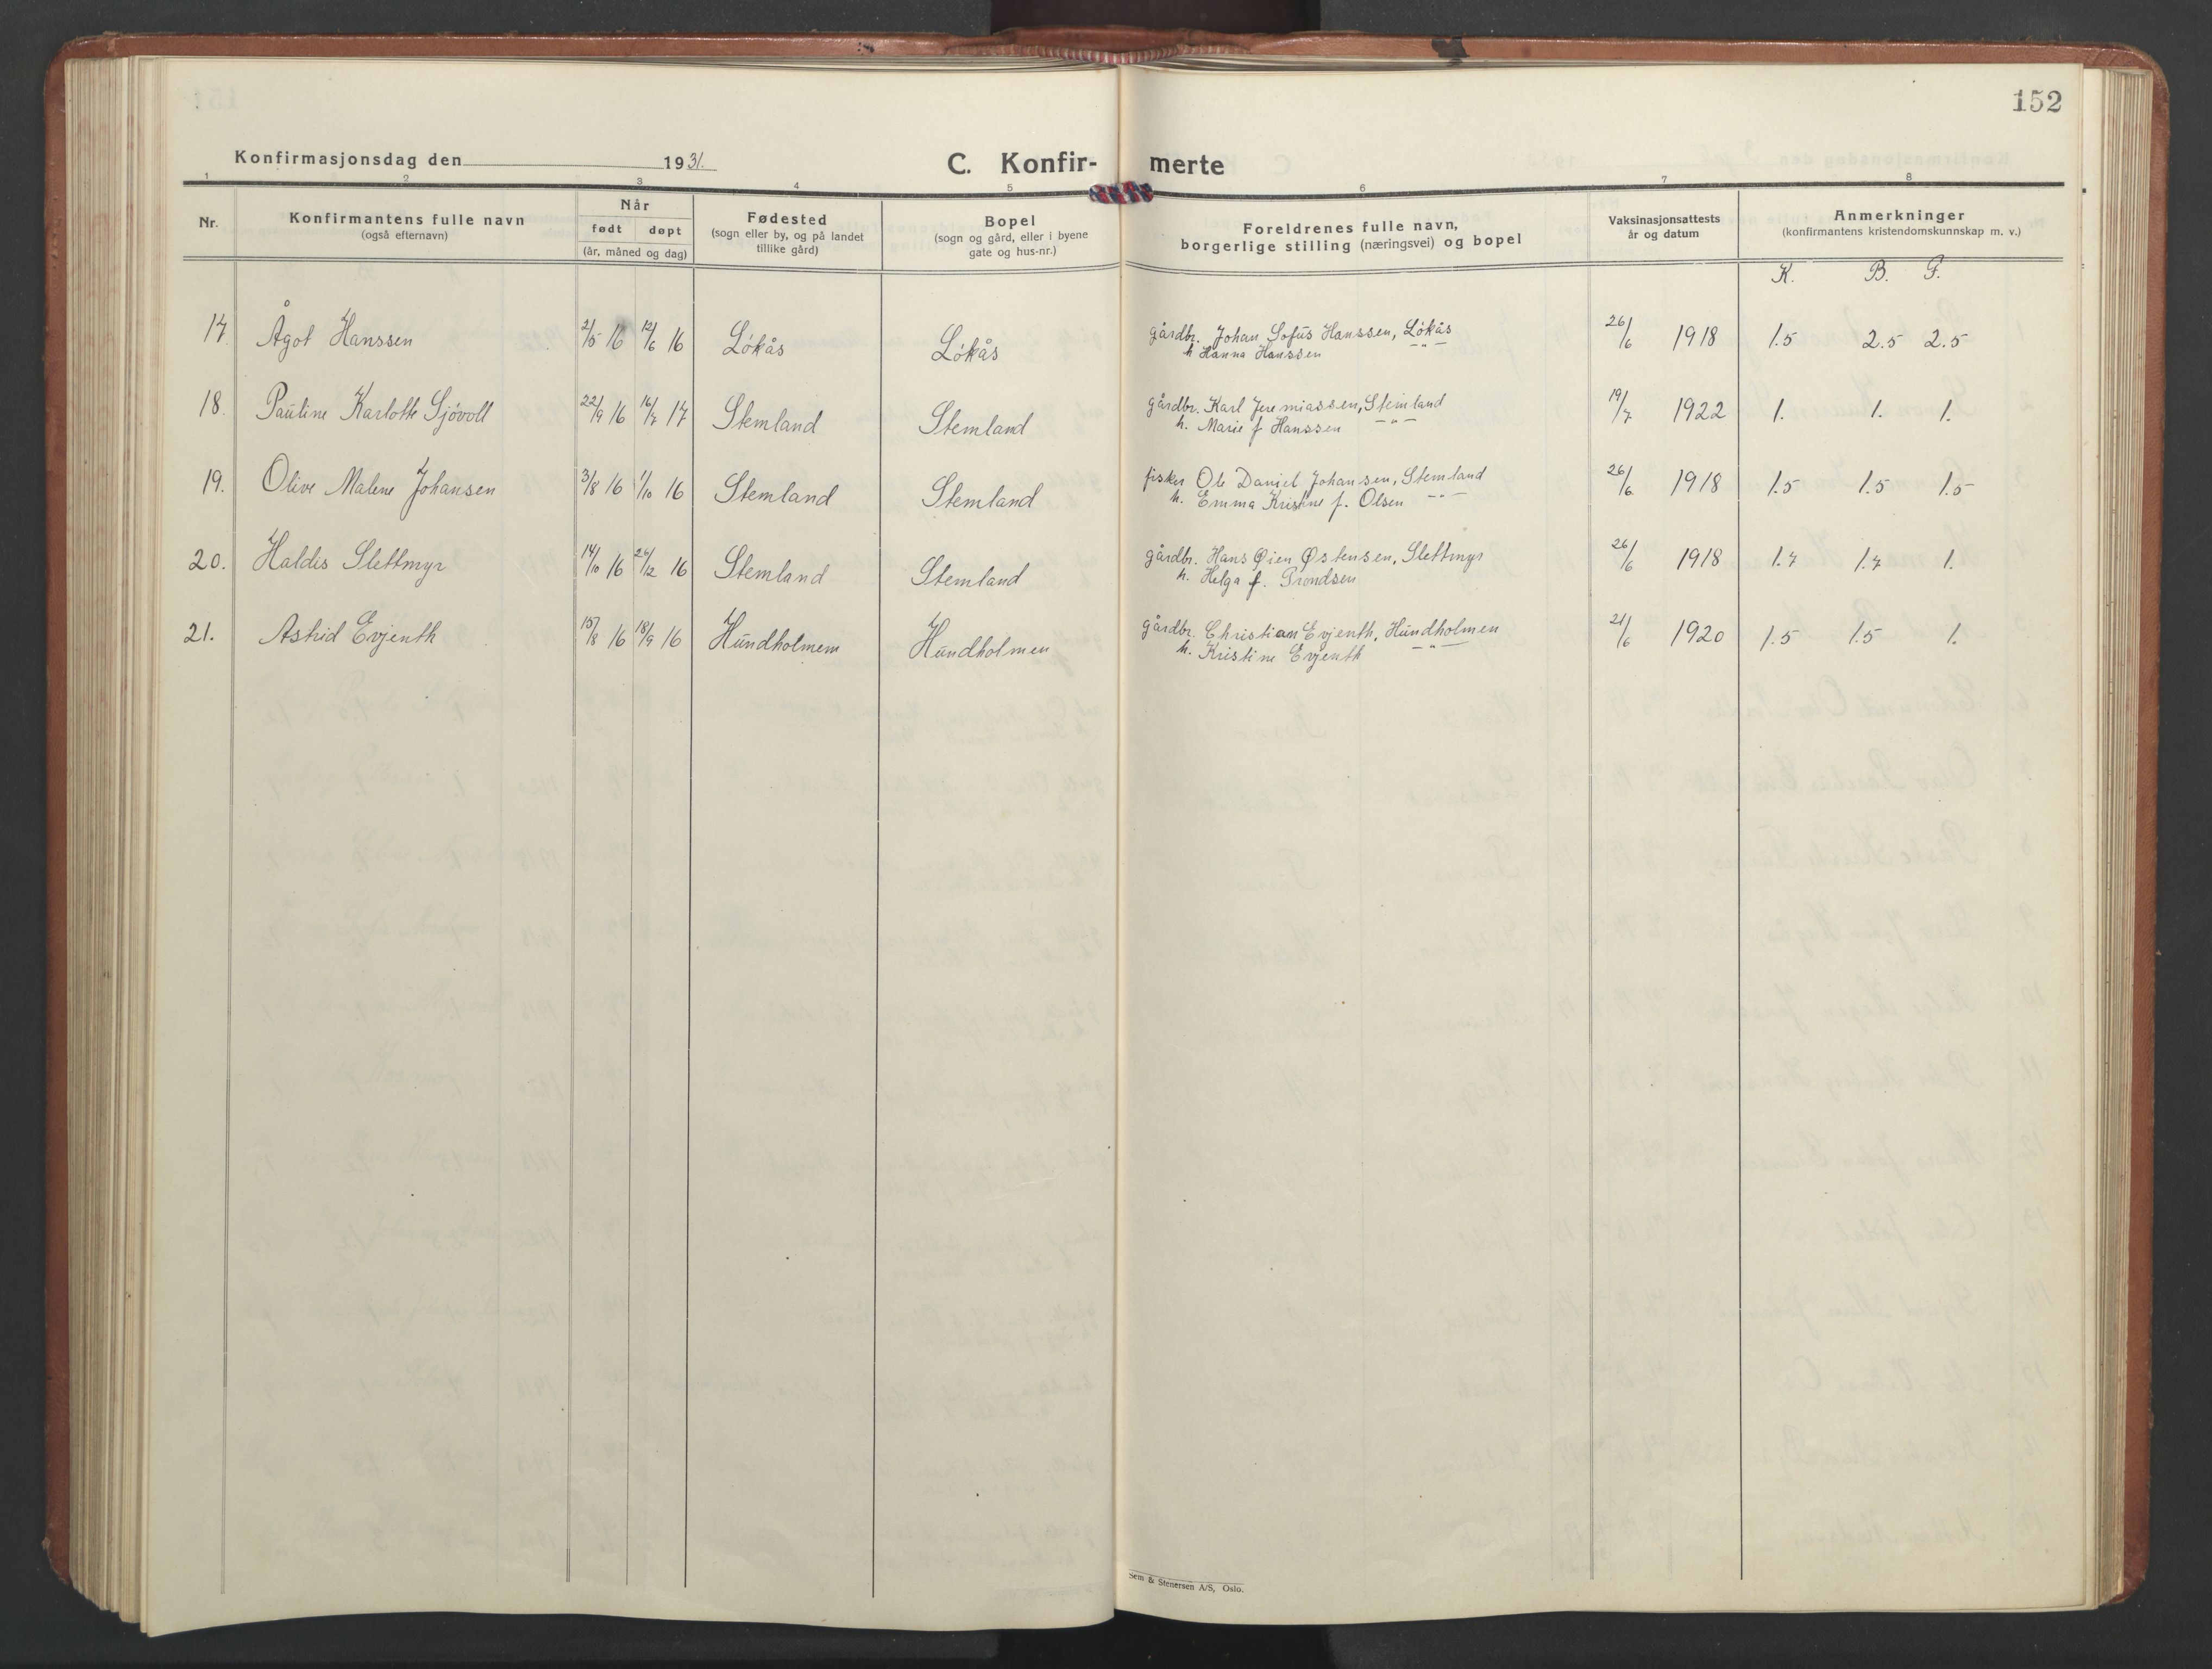 152
Konfirmasjonsdag den 1931.
C. Konfir- merte
1 2 3 4 5 6 7 8
Nr.
Konfirmantens fulle navn
(også efternavn)
Når
født døpt
(år, måned og dag)
Fødested
(sogn eller by, og på landet
tillike gård)
Bopel
(sogn og gård, eller i byene
gate og hus-nr.)
Foreldrenes fulle navn,
borgerlige stilling (næringsvei) og bopel
Vaksinasjonsattests
år og datum
Anmerkninger
(konfirmantens kristendomskunnskap m. v.)
K. B. F.
17. Ågot Hanssen 2/5 16 12/6 16 Lökås Lökås gårdbr. Johan Sofus Hanssen, Lökås 26/6 1918 1.5 2.5 2.5
h Hanna Hanssen -"-
18. Pauline Karlotte Sjövoll 22/9 16 16/7 17 Stemland Stemland gårdbr. Karl Jeremiassen, Stemland 19/7 1922 1. 1. 1.
h. Marie f Hanssen -"-
19. Olive Malene Johansen 3/8 16 1/10 16 Stemland Stemland fisker Ole Daniel Johansen, Stemland 26/6 1918 1.5 1.5 1.5
h. Emma Kristine f. Olsen -"-
20. Haldis Slettmyr 14/10 16 26/12 16 Stemland Stemland gårdbr. Hans Øien Østensen, Slettmyr 26/6 1918 1.7 1.7 1.
h. Helga f. Trondsen
21. Astrid Evjenth 15/8 16 18/9 16 Hundholmem Hundholmen gårdbr. Christian Evjenth, Hundholmen 21/6 1920 1.5 1.5 1.
h. Kristine Evjenth -"-
Sem & Stenersen A/S, Oslo.